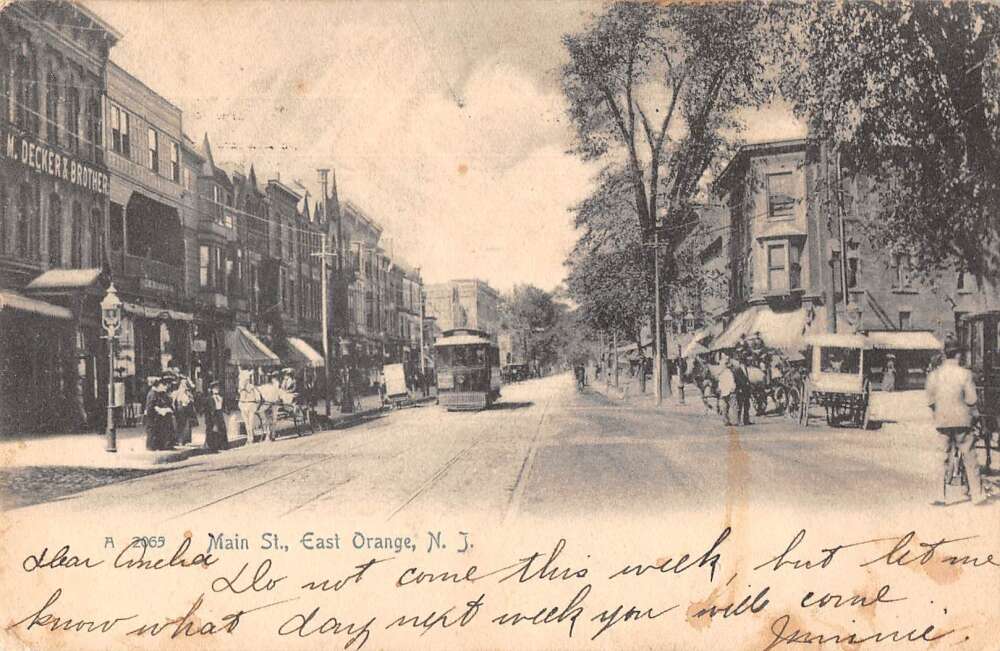 M. DECKER & BROTHER
A 2069 Main St., East Orange, N. J.
Dear Amelia
Do not come this week, but let me
know what day next week you will come.
Jimmie.